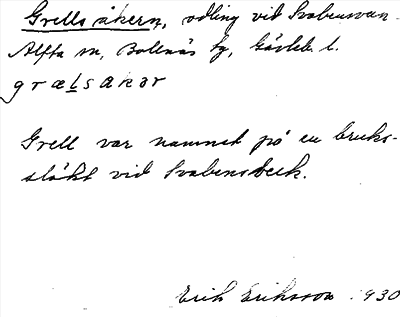 Grells åkern, odling vid Svabensverk
Alfta sn, Bollnäs tg, Gävleb. l.
grælsakər
Grell var namnet på en bruks-
släkt vid Svabensverk.
Erik Eriksson 1930